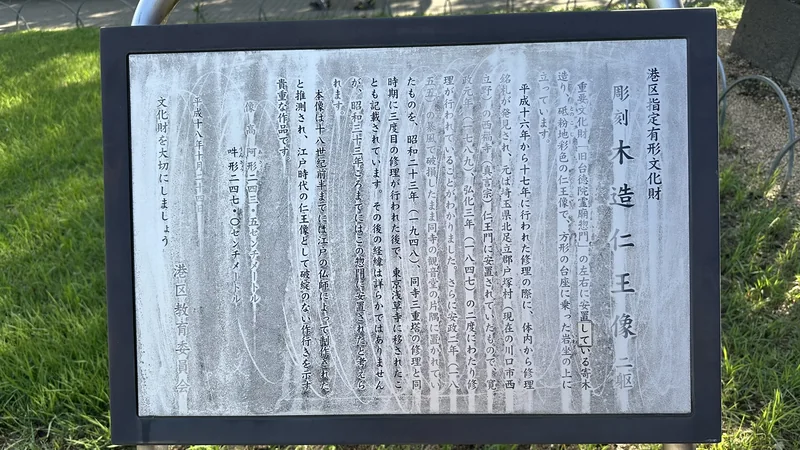 港区指定有形文化財
彫刻 木造仁王像 二躯
重要文化財「旧台徳院霊廟惣門」の左右に安置している寄木
造り、砥粉地彩色の仁王像で、方形の台座に乗った岩坐の上に
立っています。
平成十六年から十七年に行われた修理の際に、体内から修理
銘札が発見され、元は埼玉県北足立郡戸塚村（現在の川口市西
立野）の西福寺（真言宗）仁王門に安置されていたもので、寛
政元年（一七八九）、弘化三年（一八四七）の二度にわたり修
理が行われていることがわかりました。さらに安政二年（一八
五五）の大風で破損したまま同寺の観音堂の片隅に置かれてい
たものを、昭和二十三年（一九四八）、同寺三重塔の修理と同
時期に三度目の修理が行われた後で、東京浅草寺に移されたこ
とも記載されています。その後の経緯は詳らかではありません
が、昭和三十三年ころまでにはこの惣門に安置されたと考えら
れます。
本像は十八世紀前半までには江戸の仏師によって制作された
と推測され、江戸時代の仁王像として破綻のない作行きを示す
貴重な作品です。
像高 阿形二四三・五センチメートル
吽形二四七・〇センチメートル
平成十八年十月二十四日
文化財を大切にしましょう
港区教育委員会